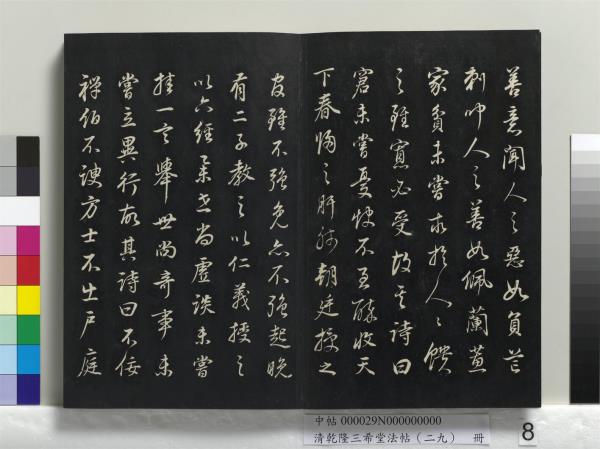 善意聞人之惡如負芒
刺聞人之善如佩蘭蕙
家貧未嘗求於人人饋
之雖寡必受故其詩曰
窘未嘗憂飲不至醉收天
下春歸之肝肺朝廷授之
官雖不強免亦不強起晚
有二子教之以仁義授之
以六經舉世尚虛談未嘗
挂一言舉世尚奇事未
嘗立異行故其詩曰不佞
禪伯不諛方士不出戶庭
中帖 000029N000000000
清乾隆三希堂法帖（二九） 冊
8